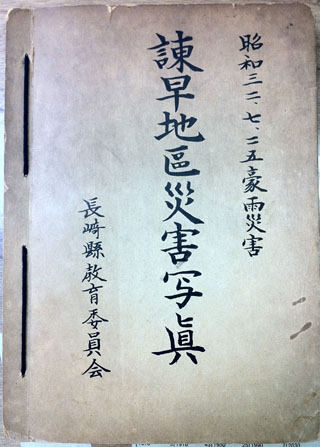 昭和三二、七、二五豪雨災害
諫早地區災害写眞
長崎縣教育委員会